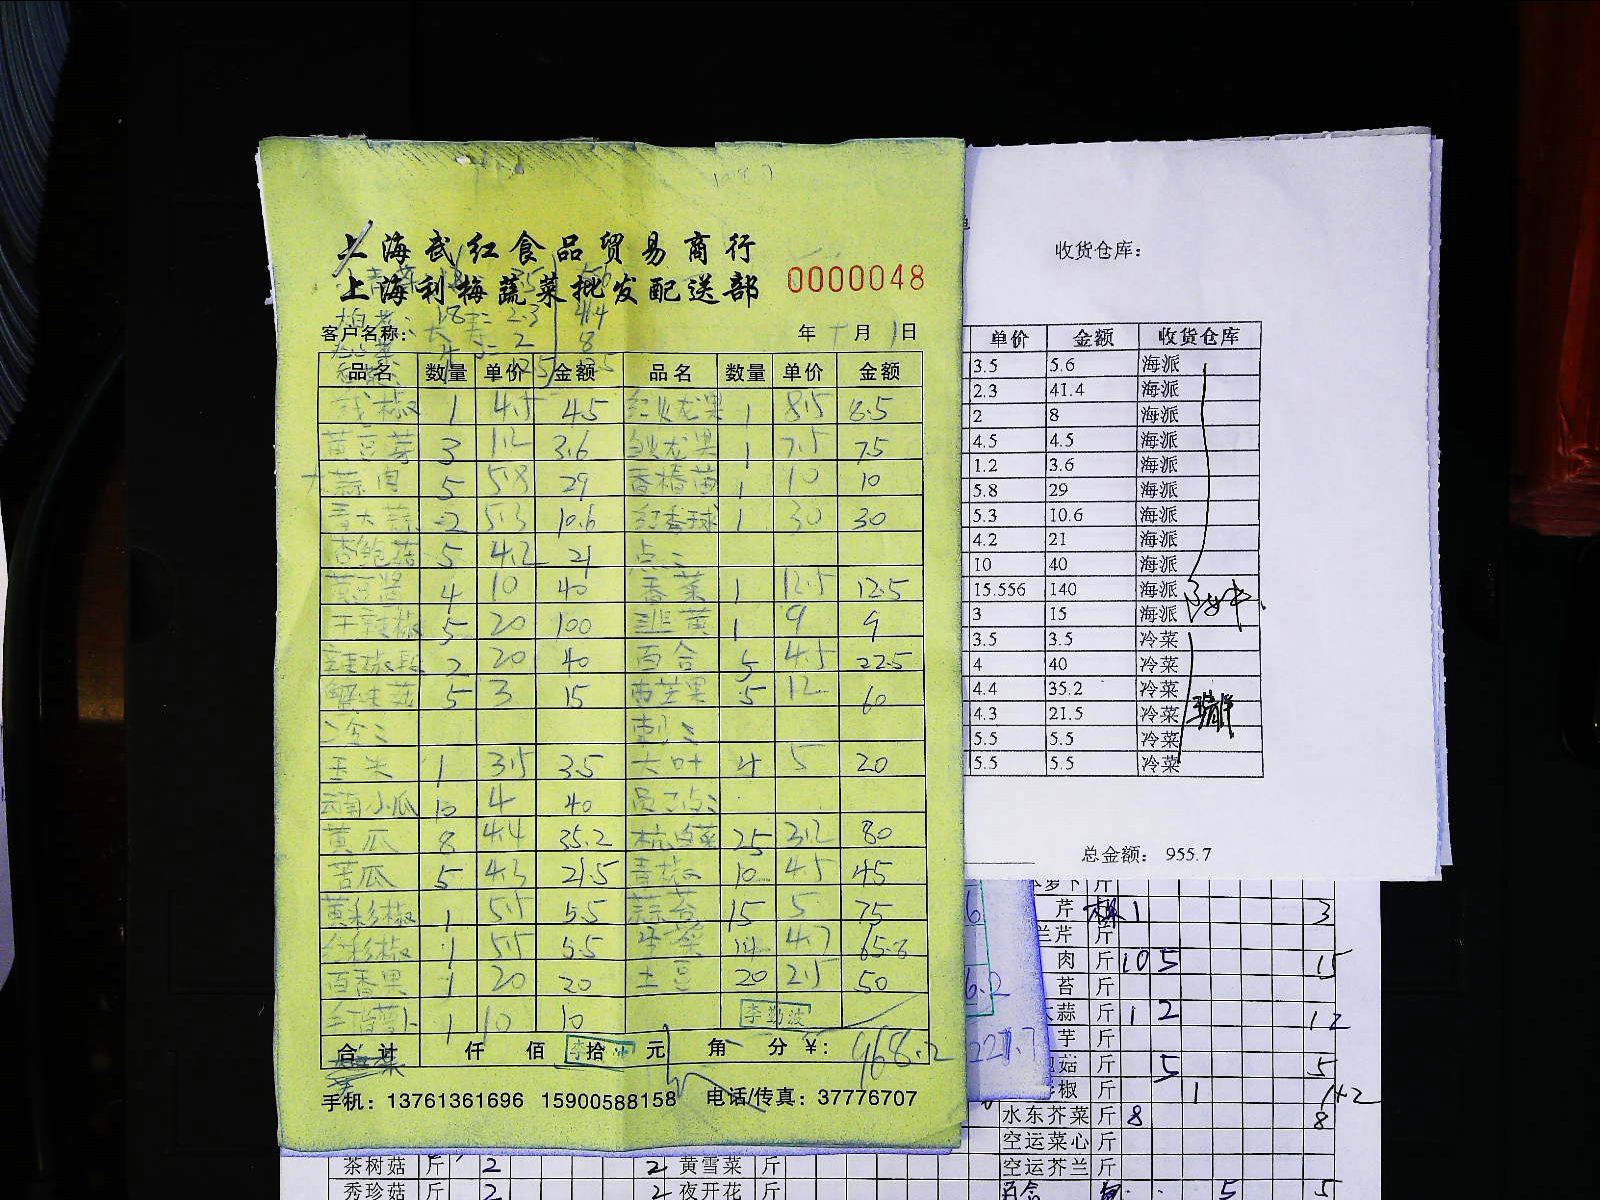 上海武红食品贸易商行
上海利梅蔬菜批发配送部 0000048
青菜 3.5 5.6
18斤 2.3 41.4
客户名称: 2 8 年 十 月 1 日
品名 数量 单价 金额 品名 数量 单价 金额
椒 1 4.5 4.5 红火龙果 1 8.5 8.5
黄豆芽 3 1.2 3.6 白火龙果 1 7.5 7.5
大蒜肉 5 5.8 29 香椿苗 1 10 10
青大蒜 2 5.3 10.6 1 30 30
杏鲍菇 5 4.2 21 点:
黄豆酱 4 10 40 香菜 1 12.5 12.5
干辣椒 5 20 100 韭黄 1 9 9
辣椒段 2 20 40 百合 5 4.5 22.5
蟹味菇 5 3 15 芒果 5 12 60
冷:
玉米 1 3.5 3.5 大叶 4 5 20
云南小瓜 10 4 40 员工点:
黄瓜 8 4.4 35.2 杭白菜 25 3.2 80
苦瓜 5 4.3 21.5 青椒 10 4.5 45
黄彩椒 1 5.5 5.5 蒜苔 15 5 75
红彩椒 1 5.5 5.5 14 4.7 65.8
百香果 1 20 20 土豆 20 2.5 50
萝卜 1 10 10 李勤波
合计 仟 佰 拾 元 角 分 ¥: 968.2
手机: 13761361696 15900588158 电话/传真: 37776707
收货仓库:
单价 金额 收货仓库
3.5 5.6 海派
2.3 41.4 海派
2 8 海派
4.5 4.5 海派
1.2 3.6 海派
5.8 29 海派
5.3 10.6 海派
4.2 21 海派
10 40 海派
15.556 140 海派
3 15 海派
3.5 3.5 冷菜
4 40 冷菜
4.4 35.2 冷菜
4.3 21.5 冷菜
5.5 5.5 冷菜
5.5 5.5 冷菜
总金额: 955.7
萝卜 斤
芹 1 3
兰芹 斤
肉 斤 10 5 15
苔 斤
大蒜 斤 1 2 12
芋 斤
菇 斤 5 5
椒 斤 1 1+2
水东芥菜 斤 8 8
空运菜心 斤
空运芥兰 斤
百合 5 5
6.2
221.7
茶树菇 斤 2 2 黄雪菜 斤
秀珍菇 斤 2 2 夜开花 斤